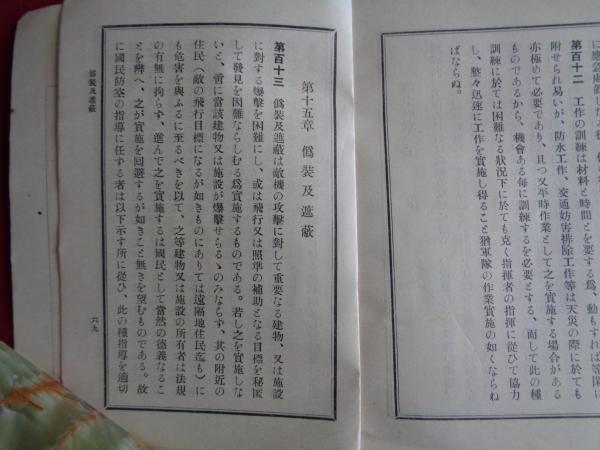 に應急處置し
第百十二　工作の訓練は材料と時間とを要する爲、動もすれば等閑に
附せられ易いが、防水工作、交通妨害排除工作等は天災の際に於ても
亦極めて必要であり、且つ又平時作業として之を實施する場合がある
ものであるから、機會ある每に訓練するを必要とする、而して此の種
訓練に於ては困難なる狀況下に於ても克く指揮者の指揮に從ひて協力
し、整々迅速に工作を實施し得ること猶軍隊の作業實施の如くならね
ばならぬ。
第十五章　僞裝及遮蔽
第百十三　僞裝及遮蔽は敵機の攻擊に對して重要なる建物、又は施設
に對する爆擊を困難にし、或は飛行又は照準の補助となる目標を秘匿
して發見を困難ならしむる爲實施するものである。若し之を實施しな
いと、啻に當該建物又は施設が爆擊せらるゝのみならず、其の附近の
住民（敵の飛行目標になるが如きものにありては遠隔地住民迄も）に
も危害を與ふるに至るべきを以て、之等建物又は施設の所有者は法規
の有無に拘らず、進んで之を實施するは國民として當然の德義なるこ
とを辨へ、之が實施を回避するが如きこと無きを望むものである。故
に國民防空の指導に任する者は以下示す所に從ひ、此の種指導を適切
僞裝及遮蔽
六九